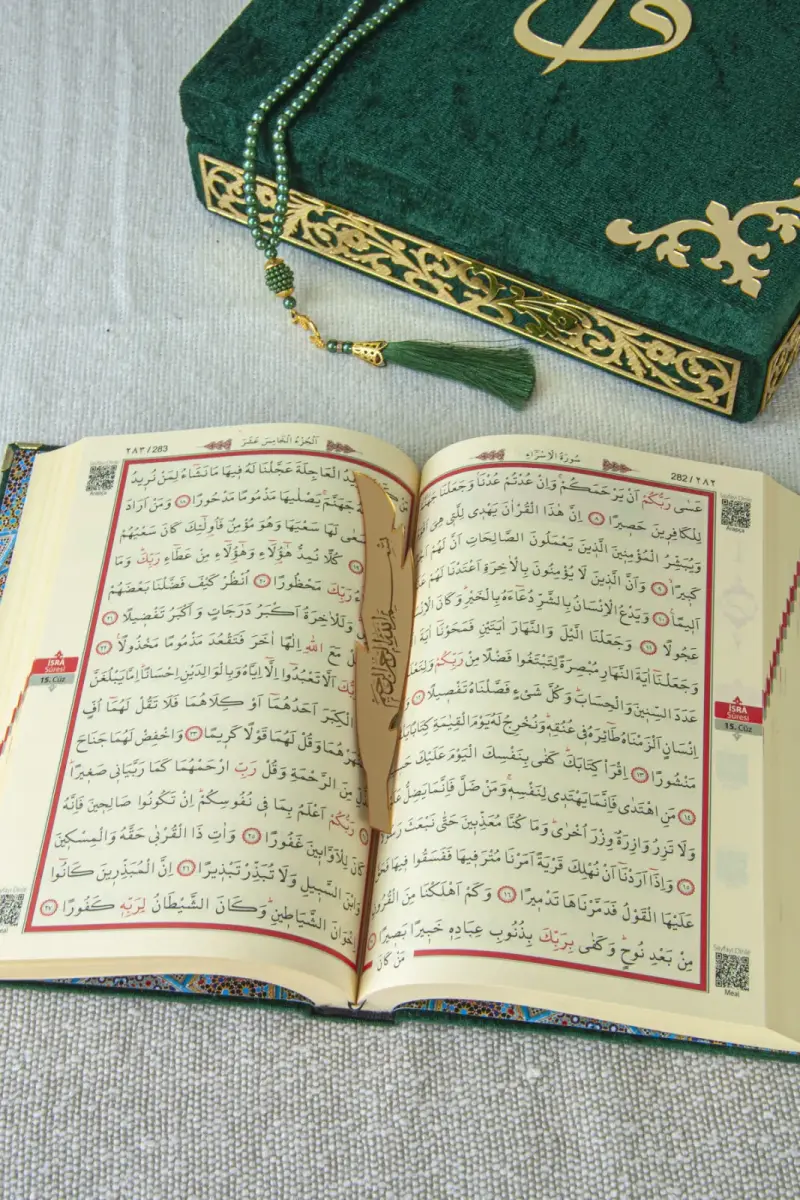 سُورَةُ الْاِسْرَاءِ
282 / ٢٨٢
عَسٰى رَبُّكُمْ اَنْ يَرْحَمَكُمْ وَاِنْ عُدْتُمْ عُدْنَا وَجَعَلْنَا
لِلْكَافِرِينَ حَصِيرًا ٨ اِنَّ هٰذَا الْقُرْاٰنَ يَهْدِى لِلَّتِى هِىَ
وَيُبَشِّرُ الْمُؤْمِنِينَ الَّذِينَ يَعْمَلُونَ الصَّالِحَاتِ اَنَّ لَهُمْ
كَبِيرًا ٩ وَاَنَّ الَّذِينَ لَا يُؤْمِنُونَ بِالْاٰخِرَةِ اَعْتَدْنَا لَهُمْ
اَلِيمًا ١٠ وَيَدْعُ الْاِنْسَانُ بِالشَّرِّ دُعَاءَهُ بِالْخَيْرِ وَكَانَ
عَجُولًا ١١ وَجَعَلْنَا الَّيْلَ وَالنَّهَارَ اٰيَتَيْنِ فَمَحَوْنَا اٰيَةَ
وَجَعَلْنَا اٰيَةَ النَّهَارِ مُبْصِرَةً لِتَبْتَغُوا فَضْلًا مِنْ رَبِّكُمْ
عَدَدَ السِّنِينَ وَالْحِسَابَ وَكُلَّ شَىْءٍ فَصَّلْنَاهُ تَفْصِيلًا ١٢
اِنْسَانٍ اَلْزَمْنَاهُ طَائِرَهُ فِى عُنُقِهِ وَنُخْرِجُ لَهُ يَوْمَ الْقِيٰمَةِ كِتَابًا
مَنْشُورًا ١٣ اِقْرَأْ كِتَابَكَ كَفٰى بِنَفْسِكَ الْيَوْمَ عَلَيْكَ
١٤ مَنِ اهْتَدٰى فَاِنَّمَا يَهْتَدِى لِنَفْسِهِ وَمَنْ ضَلَّ فَاِنَّمَا يَضِلُّ
وَلَا تَزِرُ وَازِرَةٌ وِزْرَ اُخْرٰى وَمَا كُنَّا مُعَذِّبِينَ حَتّٰى نَبْعَثَ
١٥ وَاِذَا اَرَدْنَا اَنْ نُهْلِكَ قَرْيَةً اَمَرْنَا مُتْرَفِيهَا فَفَسَقُوا فِيهَا
عَلَيْهَا الْقَوْلُ فَدَمَّرْنَاهَا تَدْمِيرًا ١٦ وَكَمْ اَهْلَكْنَا مِنَ الْقُرُونِ
مِنْ بَعْدِ نُوحٍ وَكَفٰى بِرَبِّكَ بِذُنُوبِ عِبَادِهِ خَبِيرًا بَصِيرًا
مَنْ كَانَ
İSRÂ
Sûresi
15. Cüz
Meal
٢٨٣ / 283
اَلْجُزْءُ الْخَامِسَ عَشَرَ
الْعَاجِلَةَ عَجَّلْنَا لَهُ فِيهَا مَا نَشَاءُ لِمَنْ نُرِيدُ
جَهَنَّمَ يَصْلٰيهَا مَذْمُومًا مَدْحُورًا ١٨ وَمَنْ اَرَادَ
لَهَا سَعْيَهَا وَهُوَ مُؤْمِنٌ فَاُولٰئِكَ كَانَ سَعْيُهُمْ
١٩ كُلًّا نُمِدُّ هٰؤُلَاءِ وَهٰؤُلَاءِ مِنْ عَطَاءِ رَبِّكَ وَمَا
رَبِّكَ مَحْظُورًا ٢٠ اُنْظُرْ كَيْفَ فَضَّلْنَا بَعْضَهُمْ
وَلَلْاٰخِرَةُ اَكْبَرُ دَرَجَاتٍ وَاَكْبَرُ تَفْضِيلًا ٢١
مَعَ اللّٰهِ اِلٰهًا اٰخَرَ فَتَقْعُدَ مَذْمُومًا مَخْذُولًا ٢٢
اَلَّا تَعْبُدُوا اِلَّا اِيَّاهُ وَبِالْوَالِدَيْنِ اِحْسَانًا اِمَّا يَبْلُغَنَّ
الْكِبَرَ اَحَدُهُمَا اَوْ كِلَاهُمَا فَلَا تَقُلْ لَهُمَا اُفٍّ
وَقُلْ لَهُمَا قَوْلًا كَرِيمًا ٢٣ وَاخْفِضْ لَهُمَا جَنَاحَ
مِنَ الرَّحْمَةِ وَقُلْ رَبِّ ارْحَمْهُمَا كَمَا رَبَّيَانِى صَغِيرًا
رَبُّكُمْ اَعْلَمُ بِمَا فِى نُفُوسِكُمْ اِنْ تَكُونُوا صَالِحِينَ فَاِنَّهُ
كَانَ لِلْاَوَّابِينَ غَفُورًا ٢٥ وَاٰتِ ذَا الْقُرْبٰى حَقَّهُ وَالْمِسْكِينَ
وَابْنَ السَّبِيلِ وَلَا تُبَذِّرْ تَبْذِيرًا ٢٦ اِنَّ الْمُبَذِّرِينَ كَانُوا
اِخْوَانَ الشَّيَاطِينِ وَكَانَ الشَّيْطَانُ لِرَبِّهِ كَفُورًا ٢٧
İSRÂ
Sûresi
15. Cüz
بسم الله الرحمن الرحيم